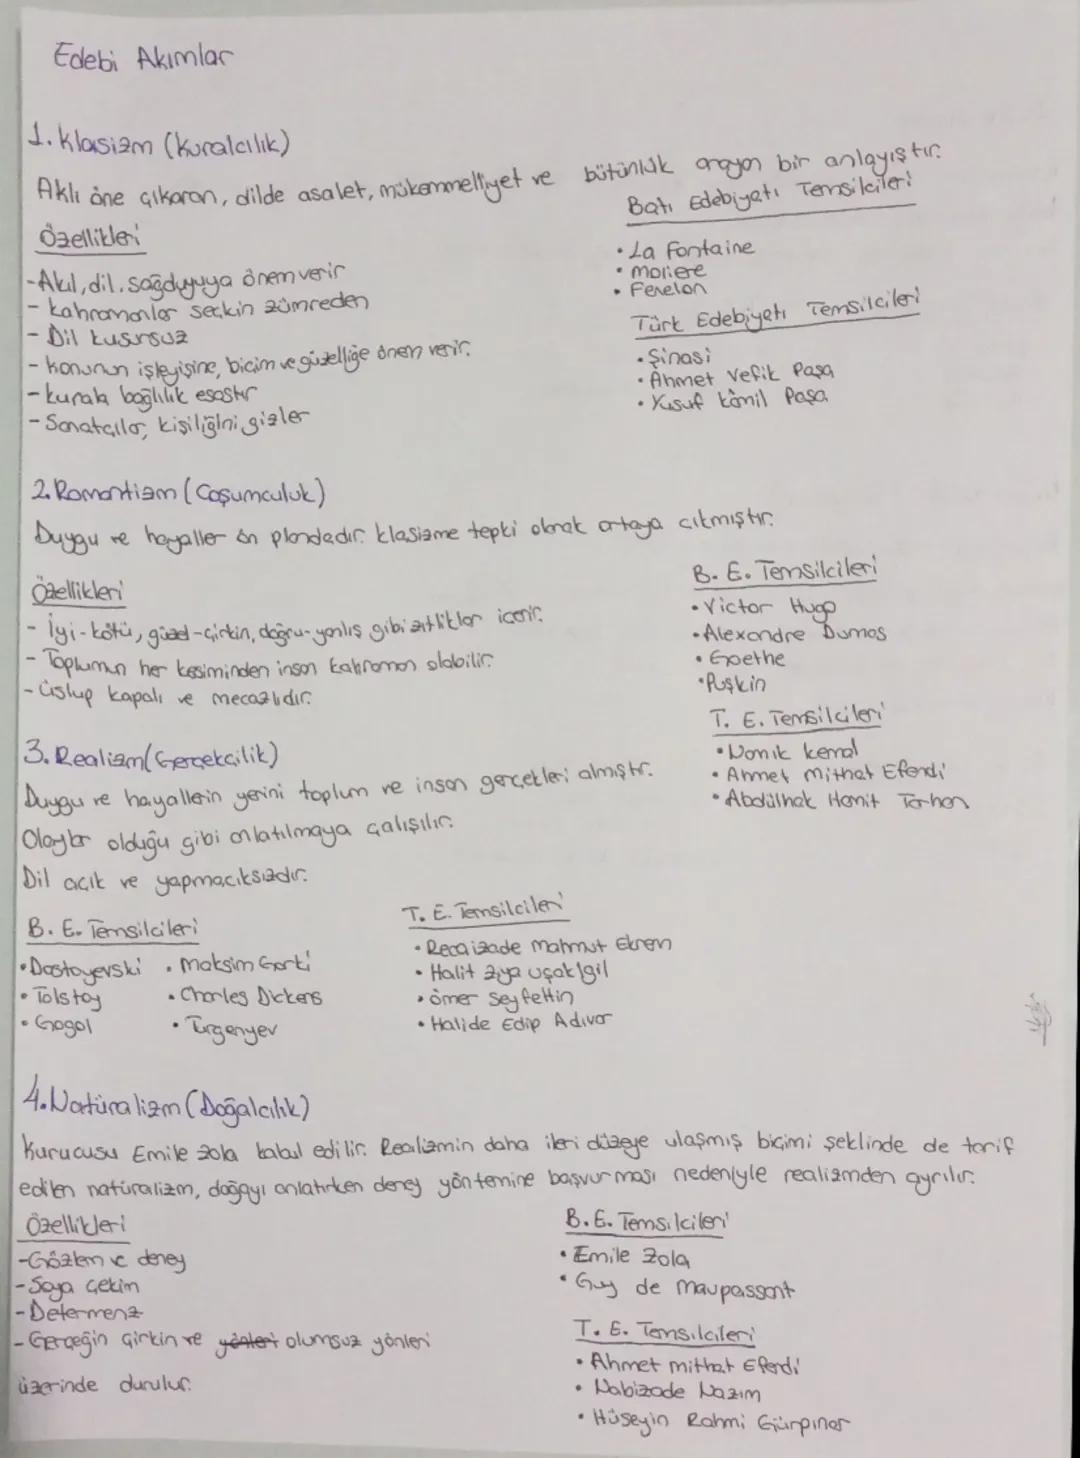 Edebi Akımlar
1. Klasizm (Kuralcılık)
Aklı öne çıkaran, dilde asalet, mükemmelliyet ve bütünlük arayan bir anlayıştır.
Özellikleri
-Akıl, dil, sağduyuya önem verir
- Kahramanlar seçkin zümreden
- Dil kusursuz
- Konunun işleyişine, biçim ve güzelliğe önem verir.
- kurala bağlılık esastır
- Sanatçılar, kişiliğini gizler
Batı Edebiyatı Temsilcileri
• La Fontaine
• moliere
• Fenelon
Türk Edebiyatı Temsilcileri
• Şinasi
• Ahmet Vefik Paşa
• Yusuf Kâmil Paşa
2. Romantizm (Coşumculuk)
Duygu ve hayaller ön plandadır. klasizme tepki olarak ortaya çıkmıştır.
Özellikleri
- İyi-kötü, güzel-çirkin, doğru-yanlış gibi zıtlıklar içerir.
- Toplumun her kesiminden insan kahraman olabilir.
- üslup kapalı ve mecazlıdır.
B. E. Temsilcileri
• Victor Hugo
• Alexandre Dumas
• Goethe
• Puşkin
T. E. Temsilcileri
• Namık kemal
• Ahmet Mithat Efendi
• Abdülhak Hamit Tarhan
3. Realizm (Gerçekçilik)
Duygu ve hayallerin yerini toplum ve insan gerçekleri almıştır.
Olaylar olduğu gibi anlatılmaya çalışılır.
Dil açık ve yapmacıksızdır.
B. E. Temsilcileri
• Dostoyevski • Maksim Gorki
• Tolstoy • Charles Dickens
• Gogol • Turgenyev
T. E. Temsilcileri
• Recaizade Mahmut Ekrem
• Halit Ziya Uşaklıgil
• Ömer Seyfettin
• Halide Edip Adıvar
4. Natüralizm (Doğalcılık)
Kurucusu Emile Zola kabul edilir. Realizmin daha ileri düzeye ulaşmış biçimi şeklinde de tarif
edilen natüralizm, doğayı anlatırken deney yöntemine başvurması nedeniyle realizmden ayrılır.
Özellikleri
- Gözlem ve deney
- Soya çekim
- Determenz
- Gerçeğin çirkin ve yönleri olumsuz yönleri
üzerinde durulur.
B. E. Temsilcileri
• Emile Zola
• Guy de Maupassant
T. E. Temsilcileri
• Ahmet mithat Efendi
• Nabizade Nazım
• Hüseyin Rahmi Gürpınar